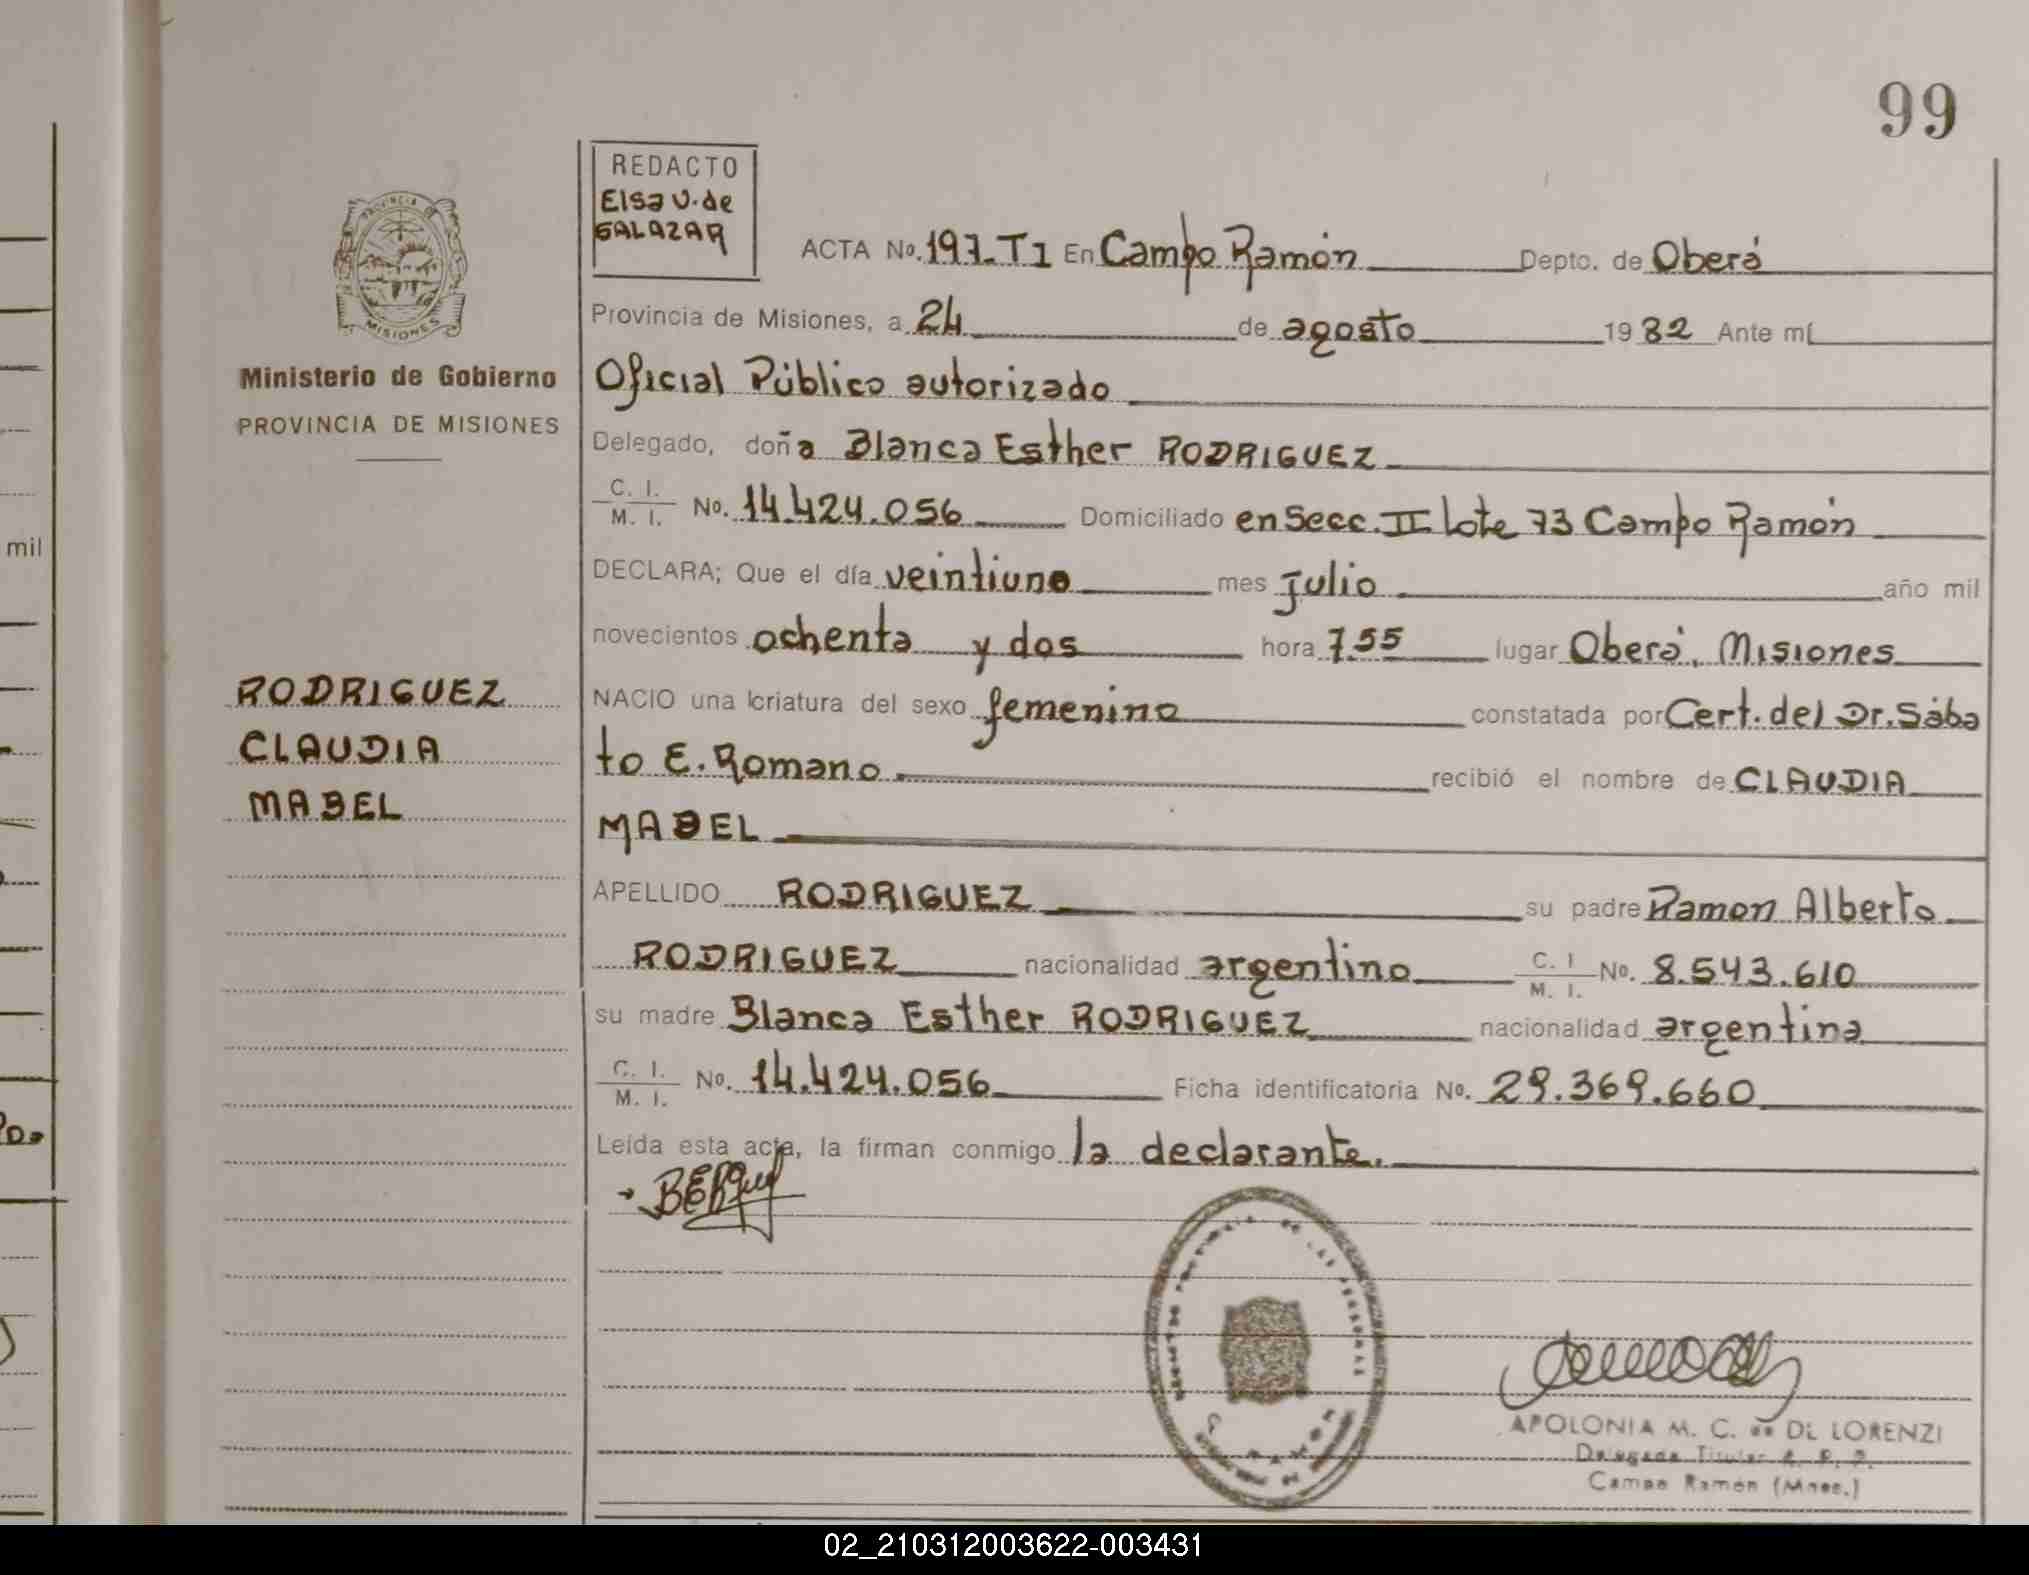 99
REDACTO
Elsa V. de
SALAZAR
PROVINCIA DE
MISIONES
Ministerio de Gobierno
PROVINCIA DE MISIONES
ACTA No. 197-T1 En Campo Ramón Depto. de Oberá
Provincia de Misiones, a 24 de agosto 1982 Ante mí
Oficial Público autorizado
Delegado, doña Blanca Esther RODRIGUEZ
C. I.
M. I. No. 14.424.056 Domiciliado en Secc. II Lote 73 Campo Ramón
DECLARA; Que el día veintiuno mes Julio año mil
novecientos ochenta y dos hora 7.55 lugar Oberá, Misiones
NACIO una criatura del sexo femenino constatada por Cert. del Dr. Sába
to E. Romano recibió el nombre de CLAUDIA
MABEL
RODRIGUEZ
CLAUDIA
MABEL
APELLIDO RODRIGUEZ su padre Ramon Alberto
RODRIGUEZ nacionalidad argentino C. I
M. I. No. 8.543.610
su madre Blanca Esther RODRIGUEZ nacionalidad argentina
C. I.
M. I. No. 14.424.056 Ficha identificatoria No. 29.369.660
Leída esta acta, la firman conmigo la declarante.
APOLONIA M. C. de DE LORENZI
Delegada Titular
Campo Ramón (Mnes.)
mil
02_210312003622-003431